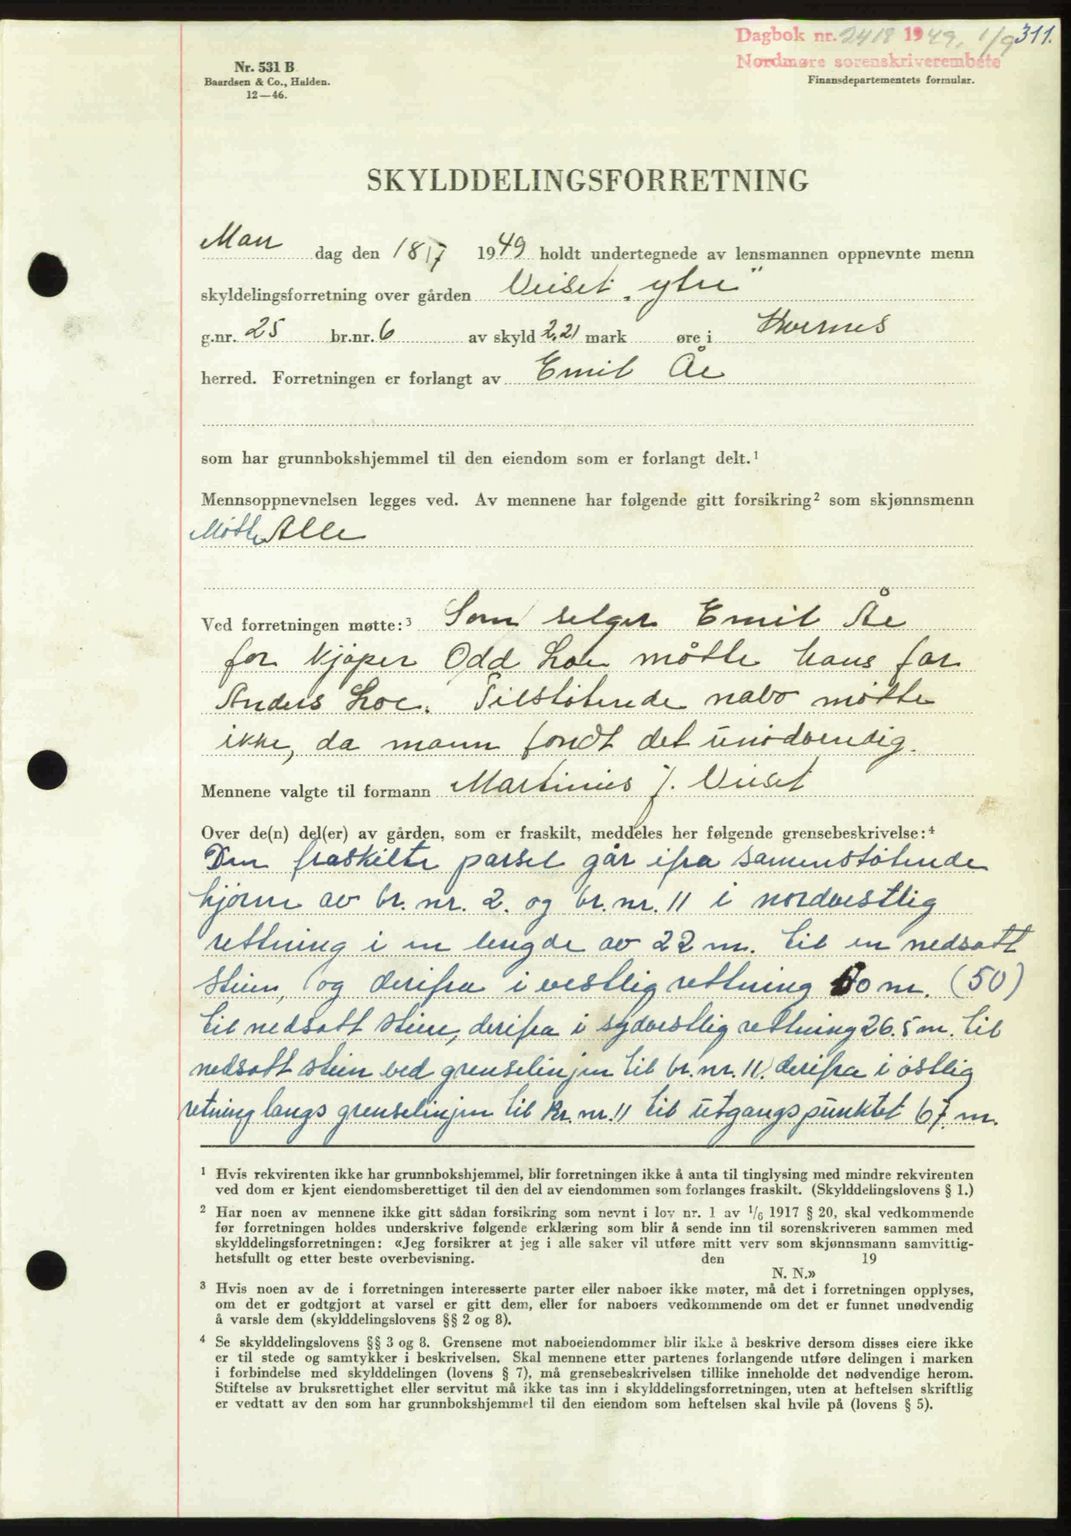 Dagbok nr. 2418 1949, 1/9 311.
Nordmøre sorenskriverembete
Nr. 531 B
Baardsen & Co., Halden.
12—46.
Finansdepartementets formular.
SKYLDDELINGSFORRETNING
Man dag den 18/7 1949 holdt undertegnede av lensmannen oppnevnte menn
skyldelingsforretning over gården Veiset „ytre"
g.nr. 25 br.nr. 6 av skyld 2,21 mark øre i Kvernes
herred. Forretningen er forlangt av Emil Åe
som har grunnbokshjemmel til den eiendom som er forlangt delt.¹
Mennsoppnevnelsen legges ved. Av mennene har følgende gitt forsikring² som skjønnsmenn
Møtte Alle
Ved forretningen møtte:³ Som selger Emil Åe
for kjøper Odd Loe møtte hans far
Anders Loe. Tilstøtende nabo møtte
ikke, da mann fondt det unødvendig.
Mennene valgte til formann Martinius J. Veiset
Over de(n) del(er) av gården, som er fraskilt, meddeles her følgende grensebeskrivelse:⁴
Den fraskilte parsel går ifra samenstøtende
hjørne av br. nr. 2. og br. nr. 11 i nordvestlig
rettning i en lengde av 22 m. til en nedsatt
stein, og derifra i vestlig rettning 50 m. (50)
til nedsatt stein, derifra i sydvestlig rettning 26.5 m. til
nedsatt stein ved grenselinjen til br. nr. 11. derifra i østlig
retning langs grenselinjen til br. nr. 11 til utgangspunktet 67 m.
¹ Hvis rekvirenten ikke har grunnbokshjemmel, blir forretningen ikke å anta til tinglysing med mindre rekvirenten
ved dom er kjent eiendomsberettiget til den del av eiendommen som forlanges fraskilt. (Skylddelingslovens § 1.)
² Har noen av mennene ikke gitt sådan forsikring som nevnt i lov nr. 1 av ¹/₆ 1917 § 20, skal vedkommende
før forretningen holdes underskrive følgende erklæring som blir å sende inn til sorenskriveren sammen med
skylddelingsforretningen: «Jeg forsikrer at jeg i alle saker vil utføre mitt verv som skjønnsmann samvittig-
hetsfullt og etter beste overbevisning. den 19
N. N.»
³ Hvis noen av de i forretningen interesserte parter eller naboer ikke møter, må det i forretningen opplyses,
om det er godtgjort at varsel er gitt dem, eller for naboers vedkommende om det er funnet unødvendig
å varsle dem (skylddelingslovens §§ 2 og 8).
⁴ Se skylddelingslovens §§ 3 og 8. Grensene mot naboeiendommer blir ikke å beskrive dersom disses eiere ikke
er til stede og samtykker i beskrivelsen. Skal mennene etter partenes forlangende utføre delingen i marken
i forbindelse med skylddelingen (lovens § 7), må grensebeskrivelsen tillike inneholde det nødvendige herom.
Stiftelse av bruksrettighet eller servitut må ikke tas inn i skylddelingsforretningen, uten at heftelsen skriftlig
er vedtatt av den som har grunnbokshjemmel til den eiendom som heftelsen skal hvile på (lovens § 5).